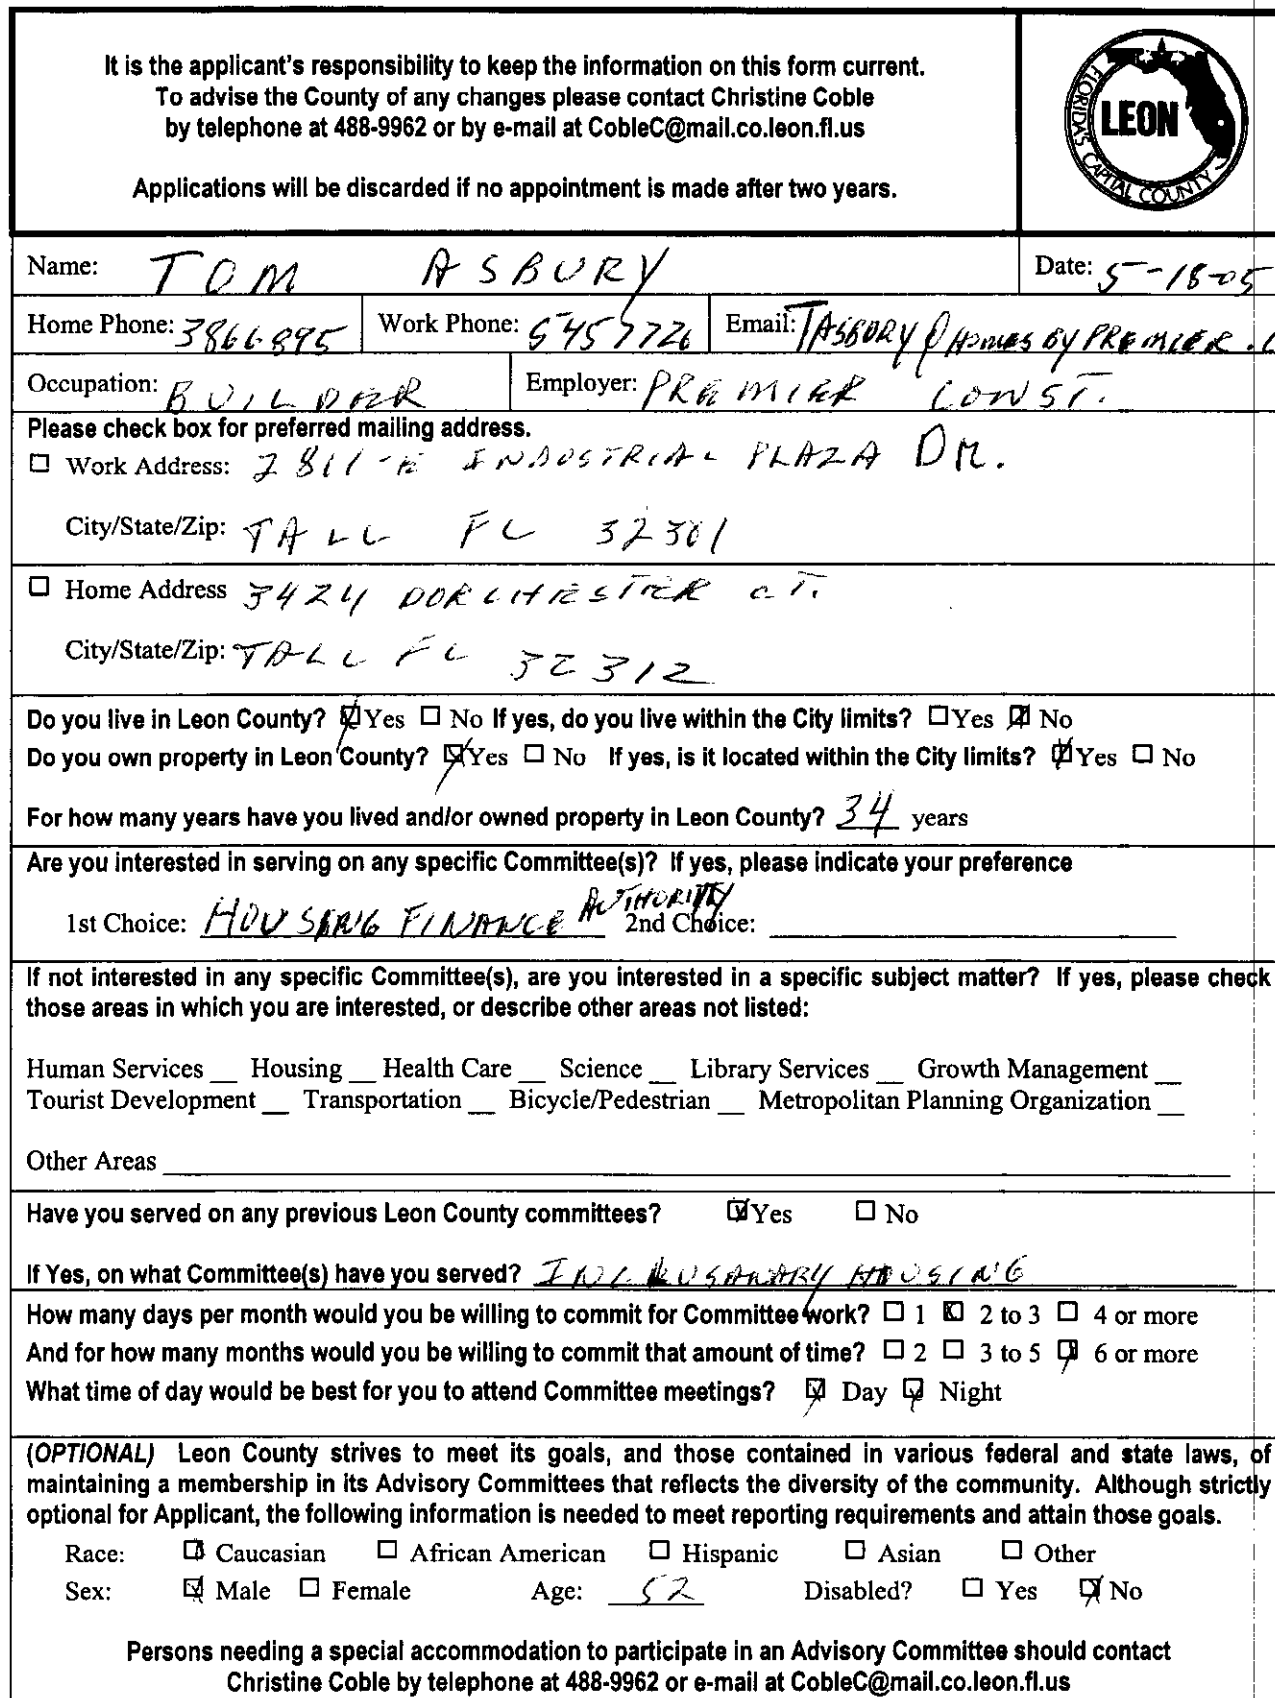 It is the applicant's responsibility to keep the information on this form current.
To advise the County of any changes please contact Christine Coble
by telephone at 488-9962 or by e-mail at CobleC@mail.co.leon.fl.us
Applications will be discarded if no appointment is made after two years.
FLORIDA'S CAPITAL COUNTY
LEON
Name: TOM ASBURY Date: 5-18-05
Home Phone: 3866895 Work Phone: 5457726 Email: TASBURY@HOMESBYPREMIER.
Occupation: BUILDER Employer: PREMIER CONST.
Please check box for preferred mailing address.
☐ Work Address: 2811-E INDUSTRIAL PLAZA DR.
City/State/Zip: TALL FL 32301
☐ Home Address 3424 DORCHESTER CT.
City/State/Zip: TALL FL 32312
Do you live in Leon County? ☑ Yes ☐ No If yes, do you live within the City limits? ☐ Yes ☑ No
Do you own property in Leon County? ☑ Yes ☐ No If yes, is it located within the City limits? ☑ Yes ☐ No
For how many years have you lived and/or owned property in Leon County? 34 years
Are you interested in serving on any specific Committee(s)? If yes, please indicate your preference
1st Choice: HOUSING FINANCE AUTHORITY 2nd Choice:
If not interested in any specific Committee(s), are you interested in a specific subject matter? If yes, please check
those areas in which you are interested, or describe other areas not listed:
Human Services __ Housing __ Health Care __ Science __ Library Services __ Growth Management __
Tourist Development __ Transportation __ Bicycle/Pedestrian __ Metropolitan Planning Organization __
Other Areas
Have you served on any previous Leon County committees? ☑ Yes ☐ No
If Yes, on what Committee(s) have you served? HOUSING
How many days per month would you be willing to commit for Committee work? ☐ 1 ☑ 2 to 3 ☐ 4 or more
And for how many months would you be willing to commit that amount of time? ☐ 2 ☐ 3 to 5 ☑ 6 or more
What time of day would be best for you to attend Committee meetings? ☑ Day ☑ Night
(OPTIONAL) Leon County strives to meet its goals, and those contained in various federal and state laws, of
maintaining a membership in its Advisory Committees that reflects the diversity of the community. Although strictly
optional for Applicant, the following information is needed to meet reporting requirements and attain those goals.
Race: ☑ Caucasian ☐ African American ☐ Hispanic ☐ Asian ☐ Other
Sex: ☑ Male ☐ Female Age: 52 Disabled? ☐ Yes ☑ No
Persons needing a special accommodation to participate in an Advisory Committee should contact
Christine Coble by telephone at 488-9962 or e-mail at CobleC@mail.co.leon.fl.us